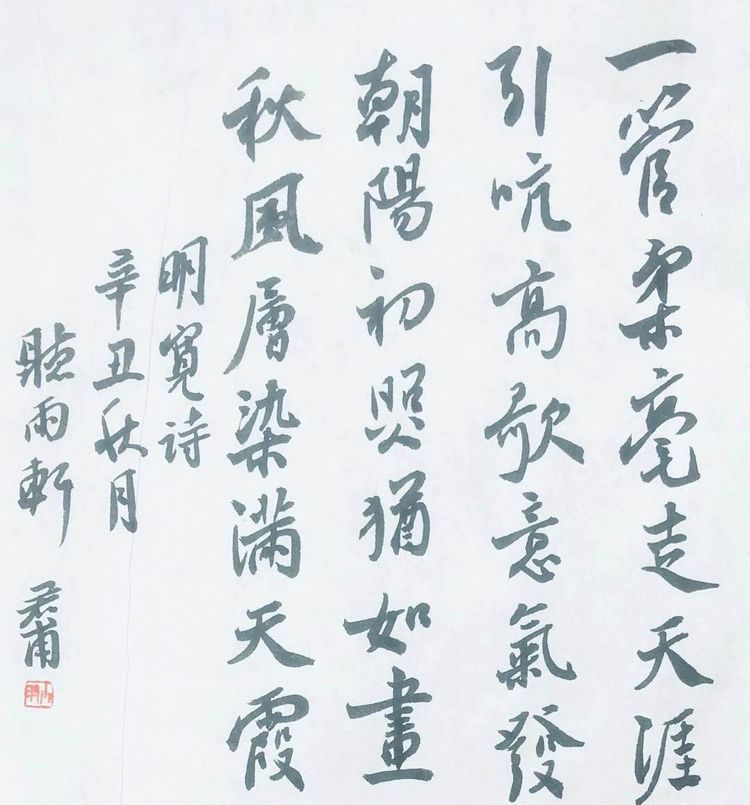 一管柔毫走天涯
引吭高歌意氣發
朝陽初照猶如畫
秋風層染滿天霞
明寬诗
辛丑秋月
聽雨軒